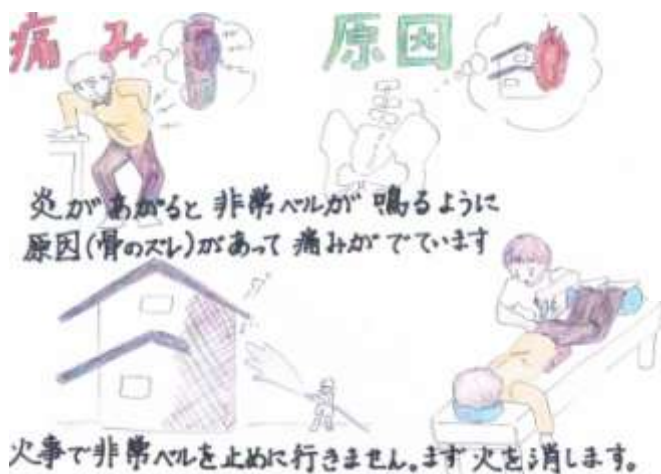 痛み
原因
炎があがると非常ベルが鳴るように
原因(骨のズレ)があって痛みがでています
火事で非常ベルを止めに行きません。まず火を消します。